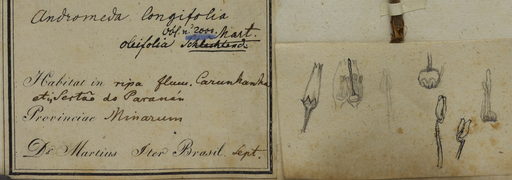 Andromeda longifolia
Obs. n. 2000. Mart.
oleifolia Schlechtend.
Habitat in ripa flum. Carunhanha
et Sertão do Paranán
Provinciae Minarum
Dr. Martius Iter Brasil. Sept.